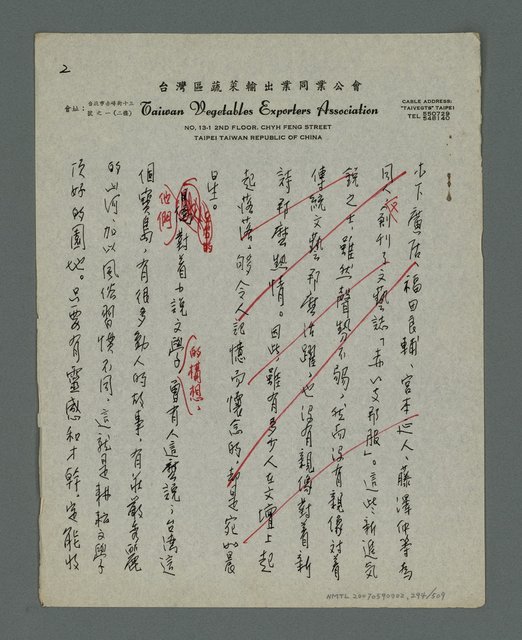 2
台灣區蔬菜輸出業同業公會
會址：台北市赤峰街十三號之一(二樓)
Taiwan Vegetables Exporters Association
NO. 13-1 2ND FLOOR, CHYH FENG STREET
TAIPEI TAIWAN REPUBLIC OF CHINA
CABLE ADDRESS:
"TAIVEGTS" TAIPEI
TEL 550729
546140
木下廣居、福田良輔、宮本延人、藤澤 等為
同人 創刊了文藝誌「赤い支那服」。這些新進氣
銳之士、雖然聲勢不夠、然而沒有親像對着
傳統文藝那麼活躍、也沒有親像對着新
詩那麼熱情。因此、雖有多少人在文壇上起
起落落、夠令人記憶而懷念的却是宛如晨
星。
他們 對着小說文學 曾有人這麼說；台灣這
的構想、
個寶島、有很多動人的故事、有莊嚴秀麗
的山河、加以風俗習慣不同、這就是耕耘文學
頂好的園地。只要有靈感和才幹、定能收
NMTL 20070590002, 294/509